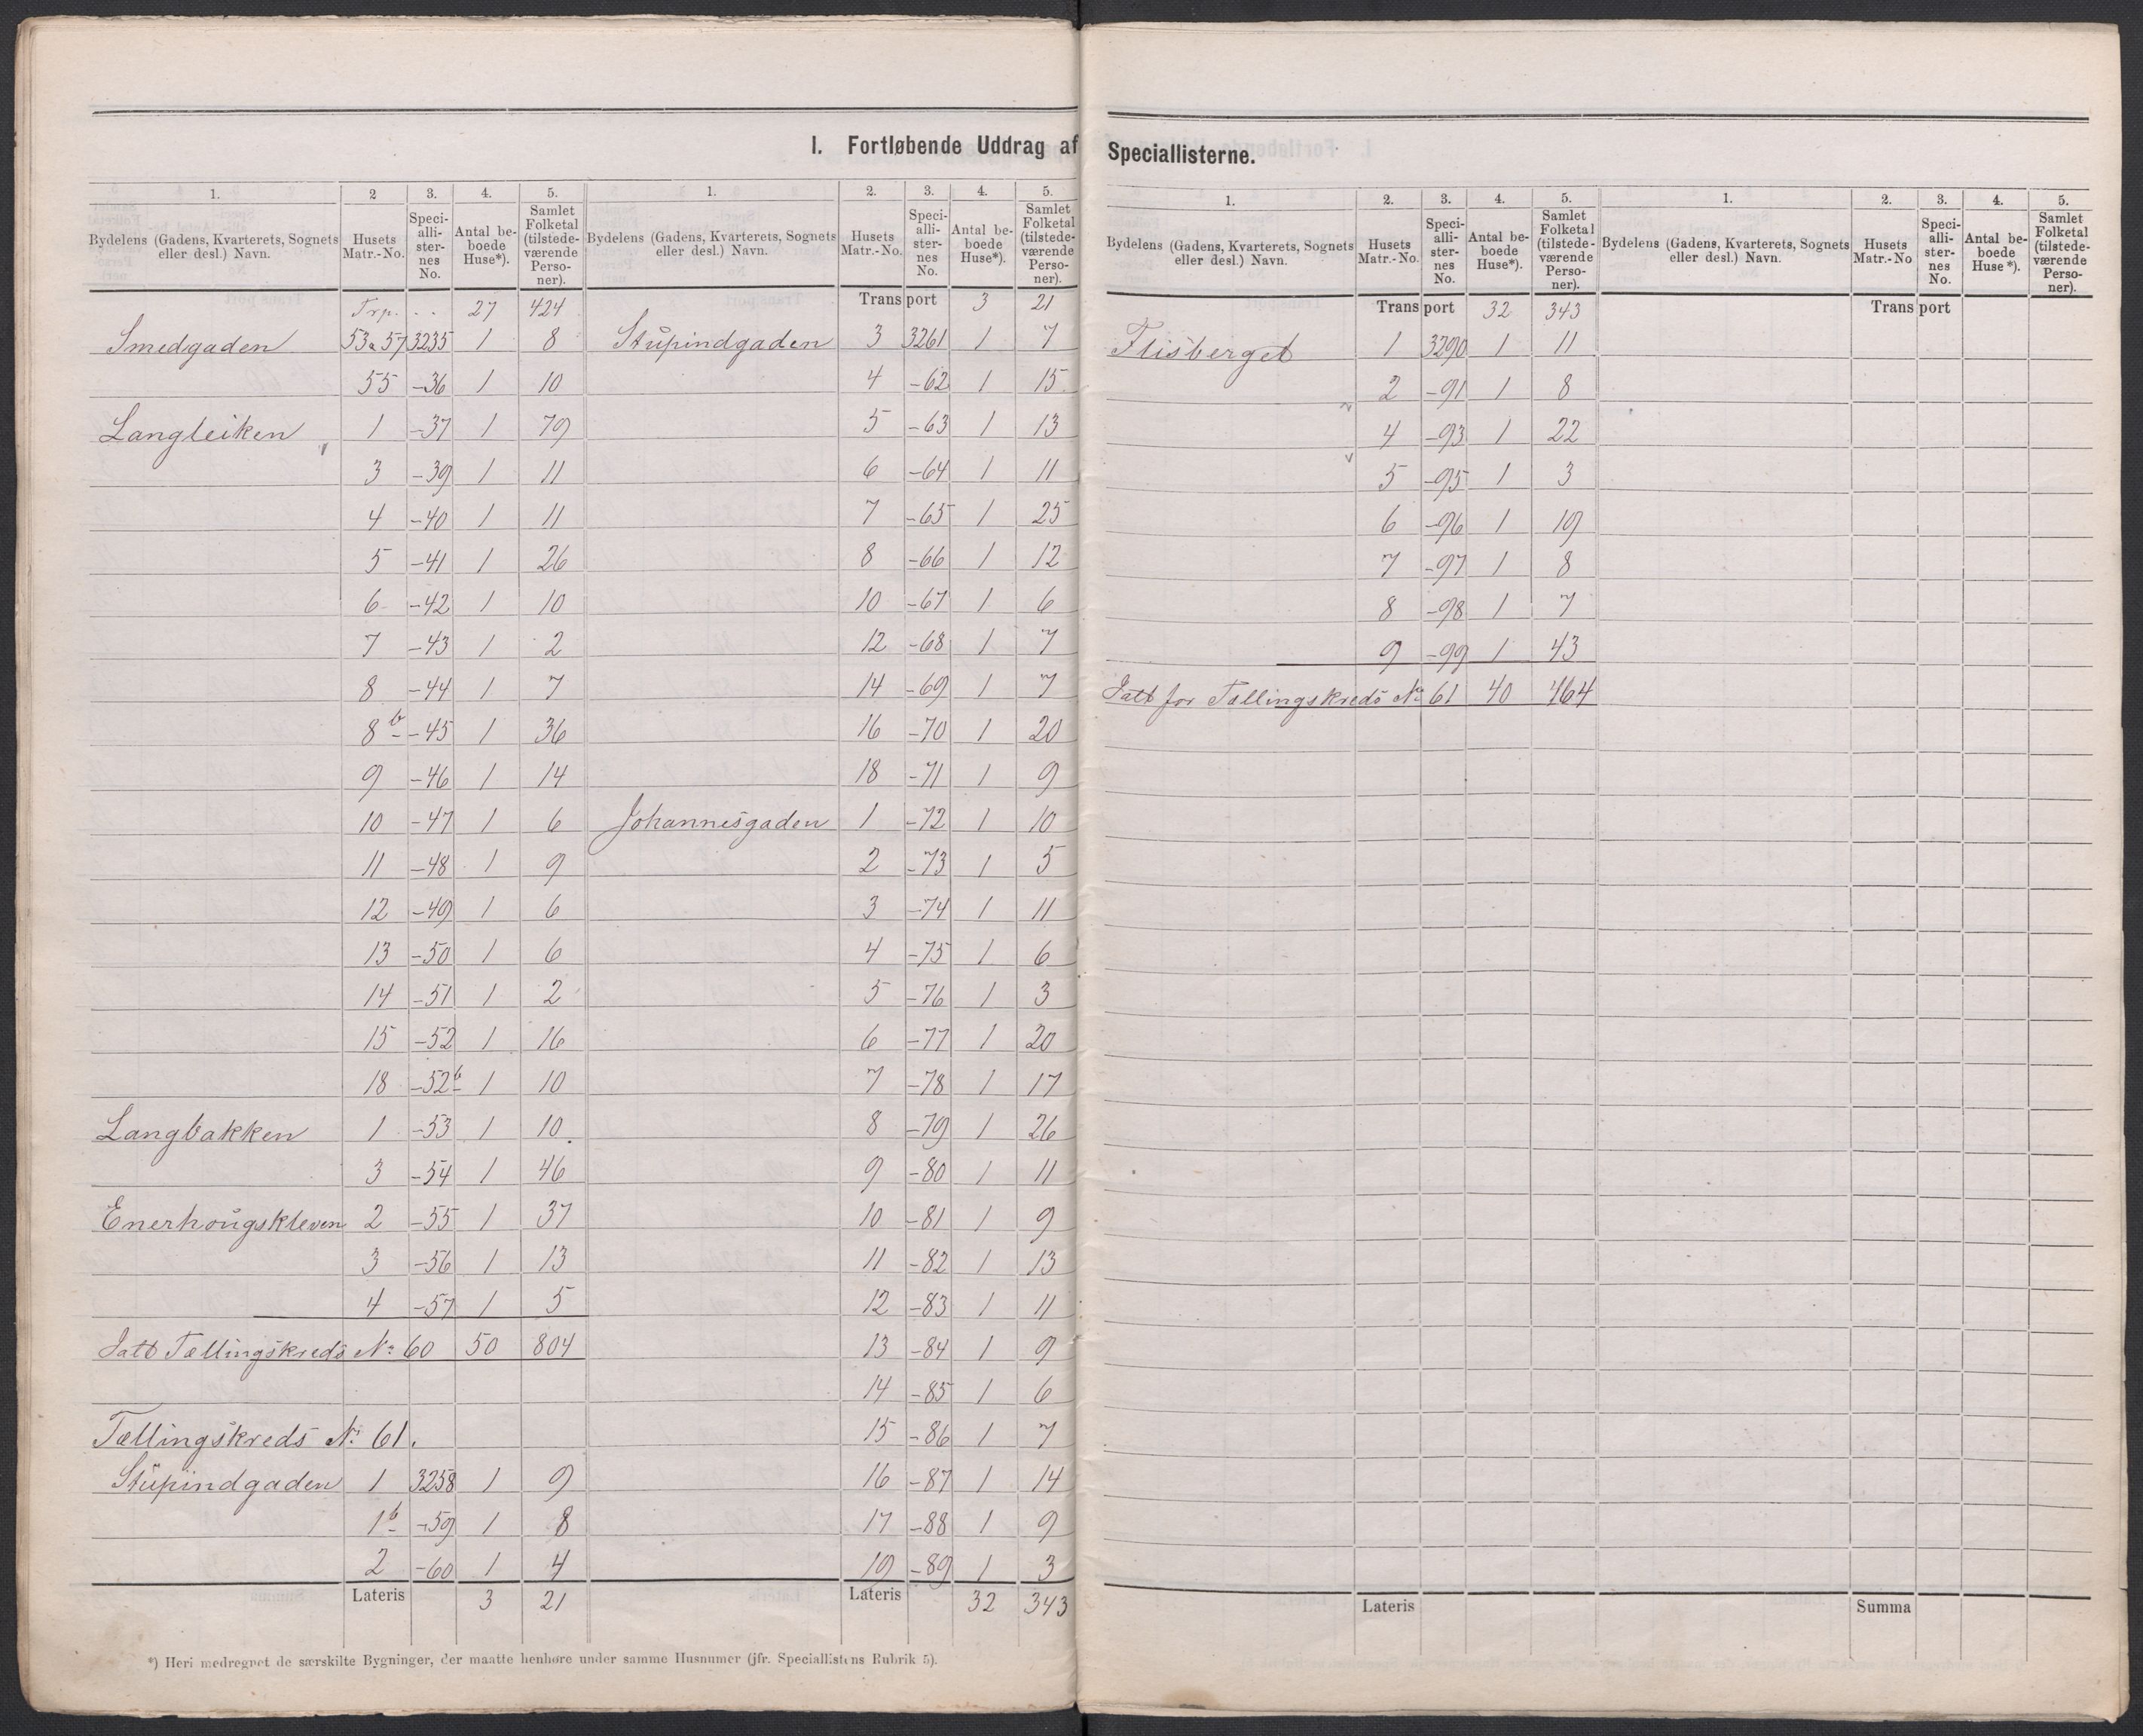 I. Fortløbende Uddrag af Speciallisterne.
1. 2 3. 4. 5.
Bydelens (Gadens, Kvarterets, Sognets eller desl.) Navn. Husets Matr.-No. Speci-alli-ster-nes No. Antal be-boede Huse*). Samlet Folketal (tilstede-værende Perso-ner).
Trp. . . 27 424
Smedgaden 53 a 57 3235 1 8
55 -36 1 10
Langleiken 1 -37 1 79
3 -39 1 11
4 -40 1 11
5 -41 1 26
6 -42 1 10
7 -43 1 2
8 -44 1 7
8 b -45 1 36
9 -46 1 14
10 -47 1 6
11 -48 1 9
12 -49 1 6
13 -50 1 6
14 -51 1 2
15 -52 1 16
18 -52 b 1 10
Langbakken 1 -53 1 10
3 -54 1 46
Enerhougskleven 2 -55 1 37
3 -56 1 13
4 -57 1 5
Ialt Tællingskreds No 60 50 804
Tællingskreds No 61.
Stupindgaden 1 3258 1 9
1 b -59 1 8
2 -60 1 4
Lateris 3 21
1. 2. 3. 4. 5.
Bydelens (Gadens, Kvarterets, Sognets eller desl.) Navn. Husets Matr.-No. Speci-alli-ster-nes No. Antal be-boede Huse*). Samlet Folketal (tilstede-værende Perso-ner).
Transport 3 21
Stupindgaden 3 3261 1 7
4 -62 1 15
5 -63 1 13
6 -64 1 11
7 -65 1 25
8 -66 1 12
10 -67 1 6
12 -68 1 7
14 -69 1 7
16 -70 1 20
18 -71 1 9
Johannesgaden 1 -72 1 10
2 -73 1 5
3 -74 1 11
4 -75 1 6
5 -76 1 3
6 -77 1 20
7 -78 1 17
8 -79 1 26
9 -80 1 11
10 -81 1 9
11 -82 1 13
12 -83 1 11
13 -84 1 9
14 -85 1 6
15 -86 1 7
16 -87 1 14
17 -88 1 9
19 -89 1 3
Lateris 32 343
*) Heri medregnet de særskilte Bygninger, der maatte henhøre under samme Husnumer (jfr. Speciallistens Rubrik 5).
1. 2. 3. 4. 5.
Bydelens (Gadens, Kvarterets, Sognets eller desl.) Navn. Husets Matr.-No. Speci-alli-ster-nes No. Antal be-boede Huse*). Samlet Folketal (tilstede-værende Perso-ner).
Transport 32 343
Flisberget 1 3290 1 11
2 -91 1 8
4 -93 1 22
5 -95 1 3
6 -96 1 19
7 -97 1 8
8 -98 1 7
9 -99 1 43
Ialt for Tællingskreds No 61 40 464
Lateris
1. 2. 3. 4. 5.
Bydelens (Gadens, Kvarterets, Sognets eller desl.) Navn. Husets Matr.-No Speci-alli-ster-nes No. Antal be-boede Huse*). Samlet Folketal (tilstede-værende Perso-ner).
Transport
Summa